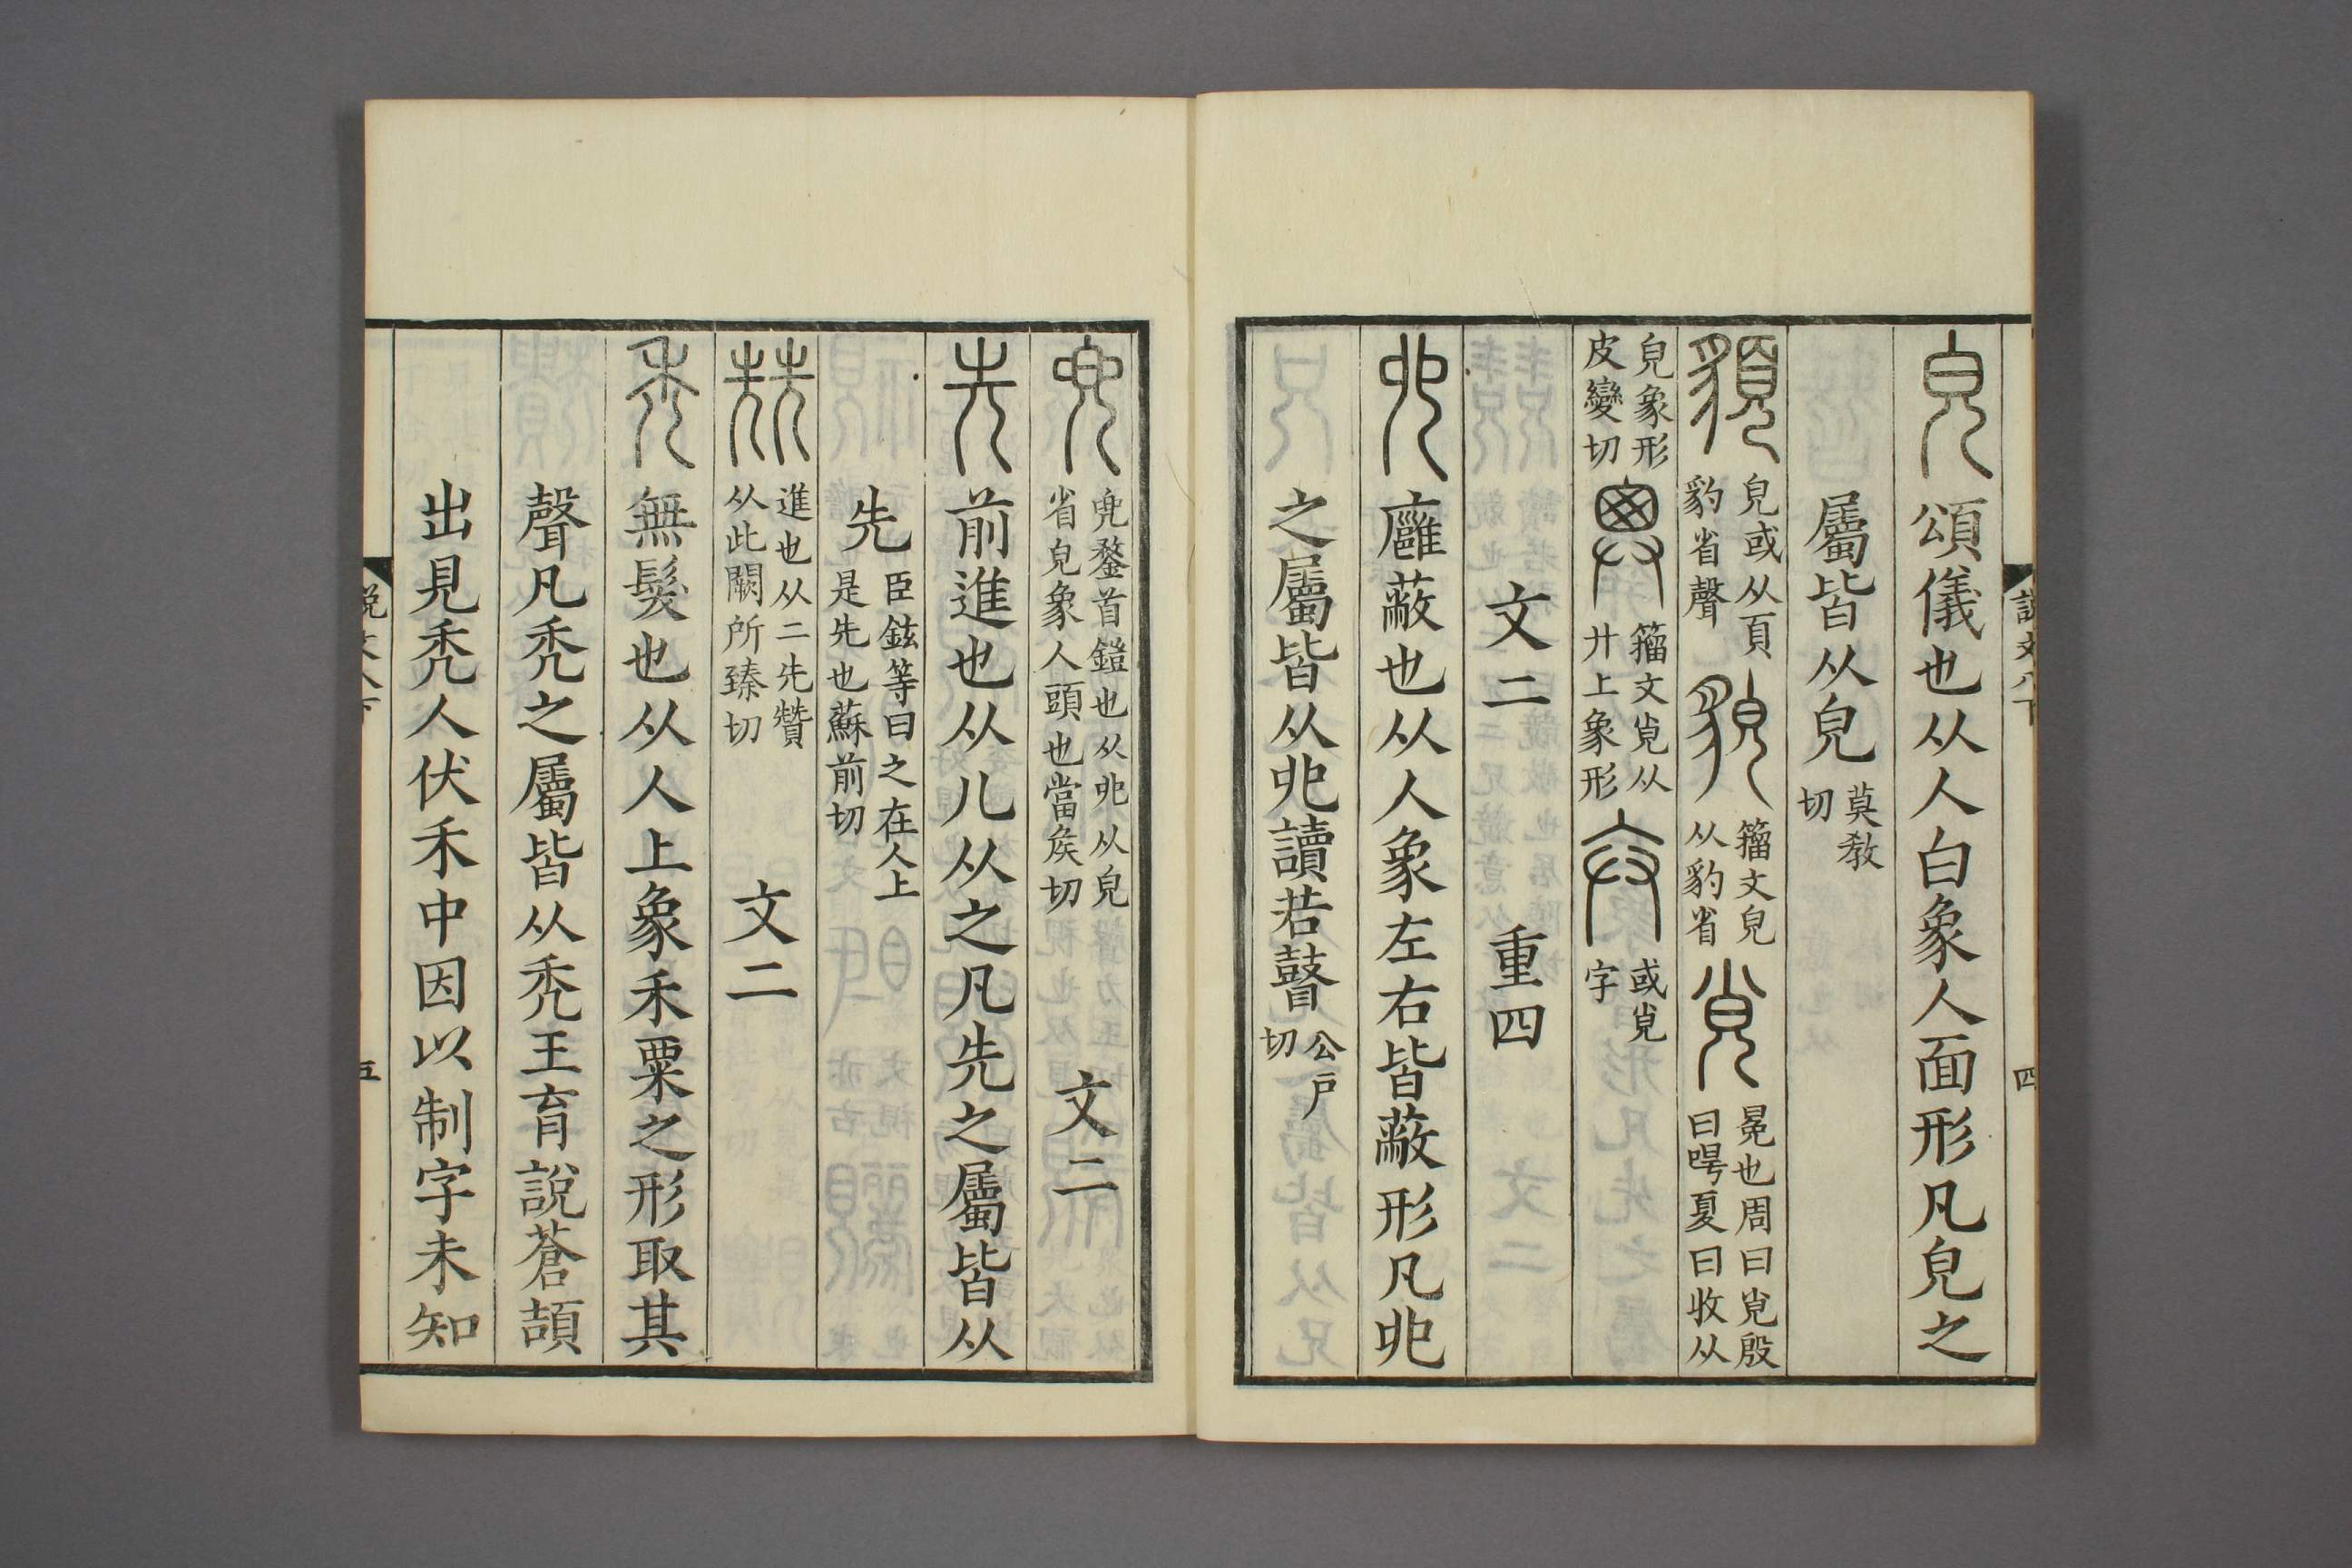 皃頌儀也从人白象人面形凡皃之
屬皆从皃莫教切
䫉皃或从頁豹省聲貌籒文皃从豹省覍冕也周曰覍殷曰吁夏曰收从
皃象形皮變切籒文覍从廾上象形弁或覍字
文二 重四
𠑹廱蔽也从人象左右皆蔽形凡𠑹
之屬皆从𠑹讀若瞽公戶切
兜兜鍪首鎧也从𠑹从皃省皃象人頭也當矦切 文二
先前進也从儿从之凡先之屬皆从
先臣鉉等曰之在人上是先也蘇前切
兟進也从二先贊从此闕所臻切 文二
秃無髮也从人上象禾粟之形取其
聲凡秃之屬皆从秃王育說蒼頡
出見秃人伏禾中因以制字未知
說文八下 四
說文八下 五